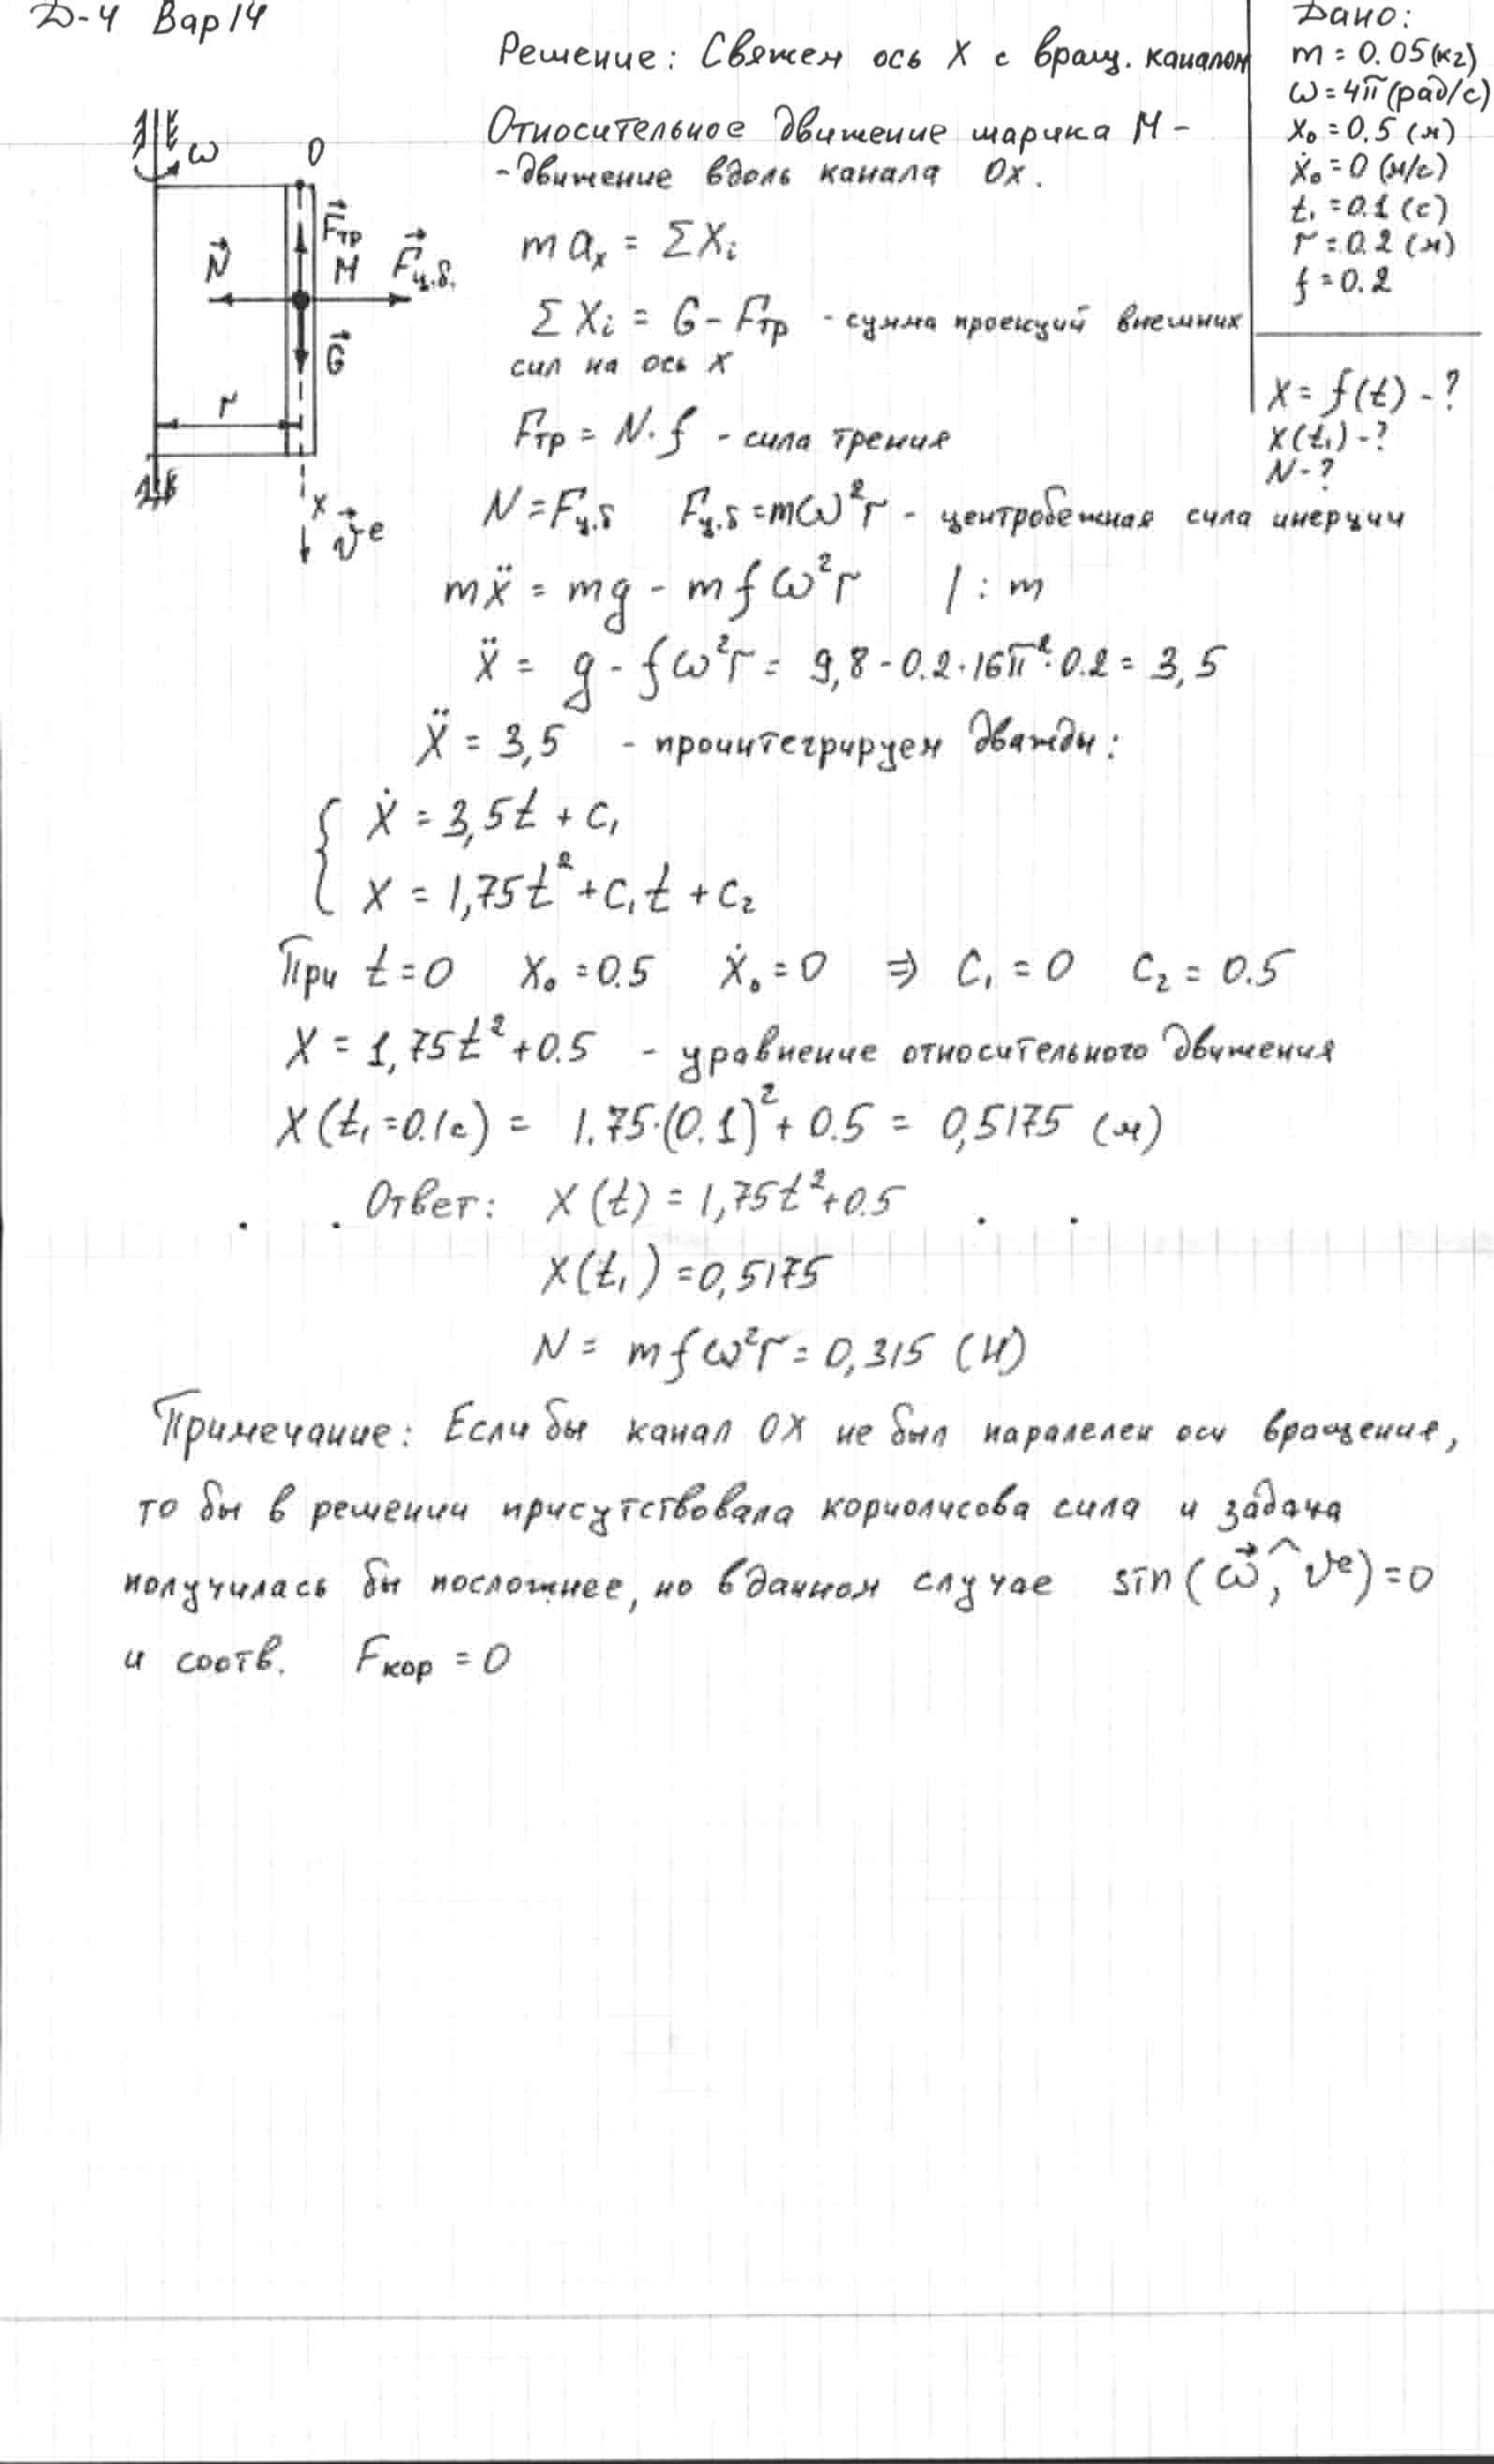 Д-4 Вар 14
Дано:
m = 0.05 (кг)
ω = 4π (рад/с)
x₀ = 0.5 (м)
ẋ₀ = 0 (м/с)
t₁ = 0.1 (с)
r = 0.2 (м)
f = 0.2
X = f(t) - ?
X(t₁) - ?
N - ?
Решение: Свяжем ось X с вращ. каналом
Относительное движение шарика М -
- движение вдоль канала Ox.
ω
O
F⃗тр
N⃗
M
F⃗ц.б.
G⃗
r
x
v⃗ᵉ
m aₓ = ΣXᵢ
ΣXᵢ = G - Fтр - сумма проекций внешних
сил на ось X
Fтр = N · f - сила трения
N = Fц.б Fц.б = mω²r - центробежная сила инерции
mẍ = mg - mfω²r | : m
ẍ = g - fω²r = 9,8 - 0.2 · 16π² · 0.2 = 3,5
Ẍ = 3,5 - проинтегрируем дважды:
{ Ẋ = 3,5t + C₁
X = 1,75t² + C₁t + C₂
При t = 0 X₀ = 0.5 Ẋ₀ = 0 ⇒ C₁ = 0 C₂ = 0.5
X = 1,75t² + 0.5 - уравнение относительного движения
X(t₁ = 0.1с) = 1.75·(0.1)² + 0.5 = 0,5175 (м)
Ответ: X(t) = 1,75t² + 0.5
X(t₁) = 0,5175
N = mfω²r = 0,315 (Н)
Примечание: Если бы канал OX не был паралелен оси вращения,
то бы в решении присутствовала кориолисова сила и задача
получилась бы посложнее, но в данном случае sin(ω⃗,^vᵉ) = 0
и соотв. Fкор = 0